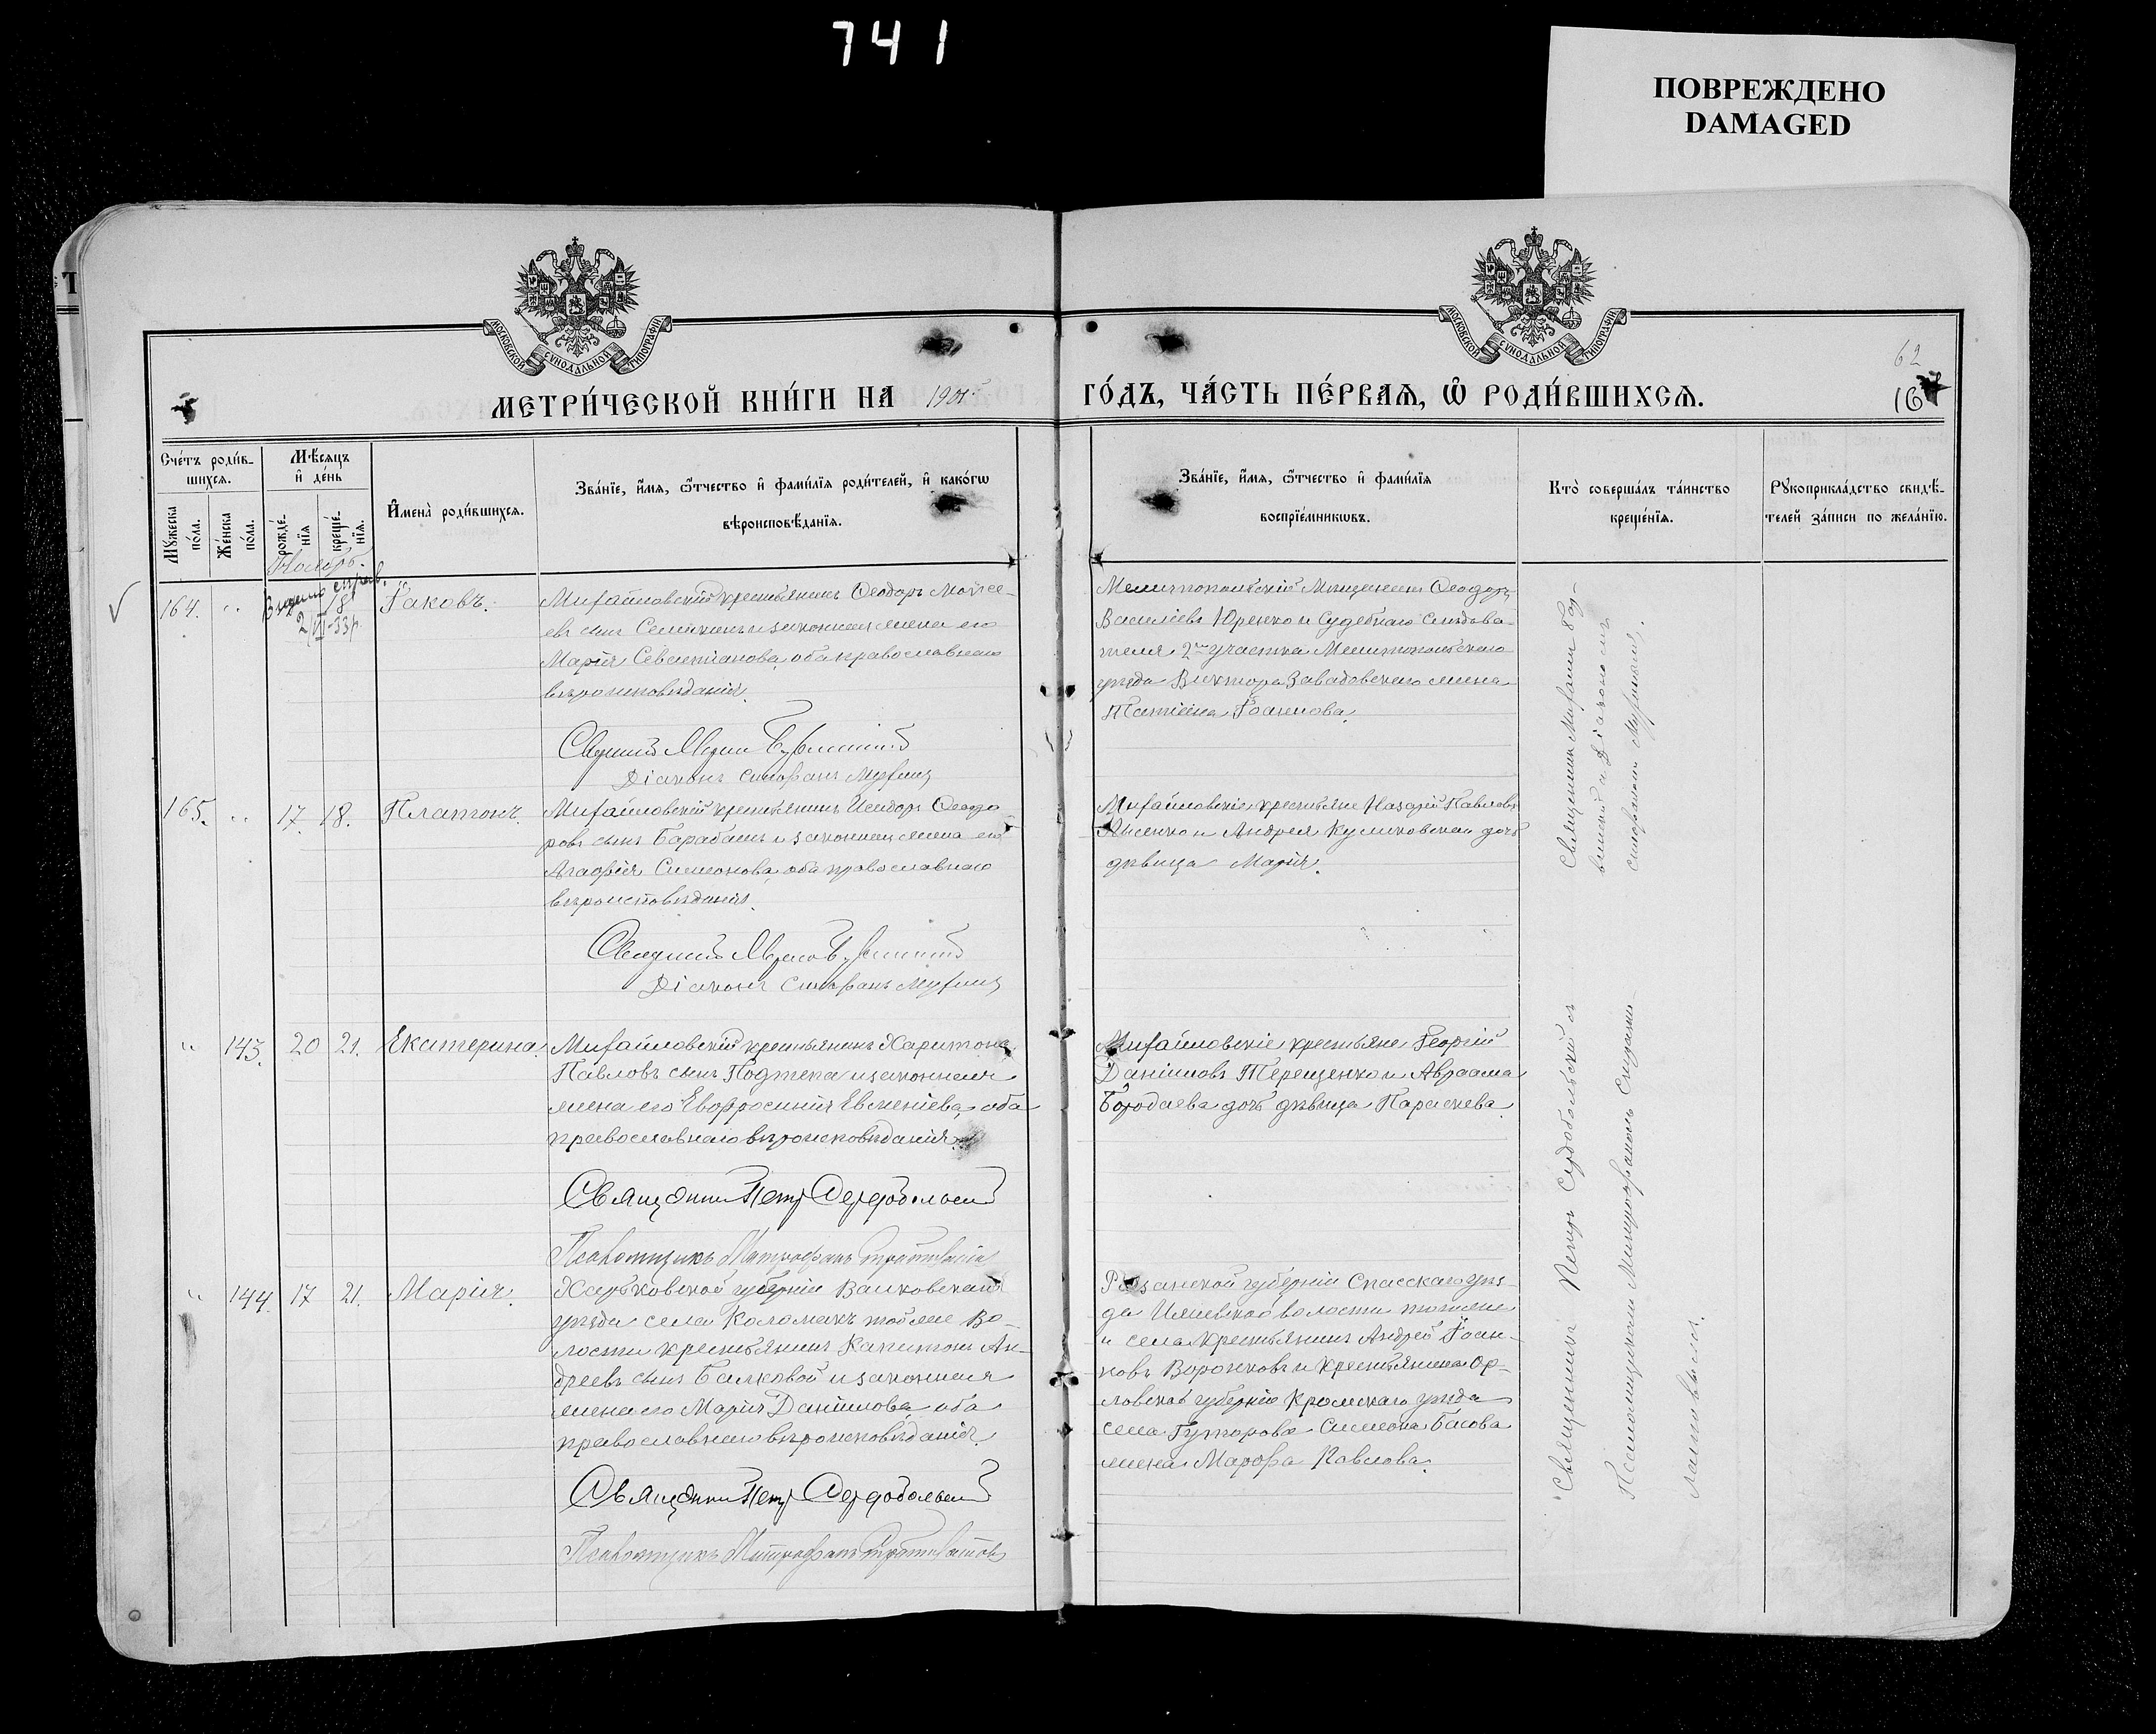 741
ПОВРЕЖДЕНО
DAMAGED
МОСКОВСКОЙ СУНОДАЛЬНОЙ ТИПОГРАФІИ
МОСКОВСКОЙ СУНОДАЛЬНОЙ ТИПОГРАФІИ
62
МЕТРИ́ЧЕСКОЙ КНИ́ГИ НА 1901
ГО́ДЪ, ЧА́СТЬ ПЕ́РВАѦ, Ѡ РОДИ́ВШИХСѦ.
16
Сче́тъ роди́в-
шихсѧ.
Му́жеска по́ла.
Же́нска по́ла.
Мѣ́сѧцъ
и҆ де́нь
рожде́-
нїѧ
креще́-
нїѧ.
И҆мена̀ роди́вшихсѧ.
Зва́нїе, и҆́мѧ, ѻ҆́тчество и҆ фами́лїѧ роди́телей, и҆ како́гѡ
вѣроисповѣ́данїѧ.
Зва́нїе, и҆́мѧ, ѻ҆́тчество и҆ фами́лїѧ
воспрїе́мникѡвъ.
Кто̀ соверша́лъ та́инство
креще́нїѧ.
Рꙋкоприкла́дство свидѣ́-
телей за́писи по жела́нїю.
Ноябрь.
164. " 18 Іаковъ.
Михайловскій крестьянинъ Ѳеодоръ Мойсе-
евъ сынъ Семикинъ и законная жена его
Марія Севастіанова, оба православнаго
вѣроисповѣданія.
Діаконъ
Мелитопольскій Мѣщанинъ Ѳеодоръ
Василіевъ Юренко и Судебнаго Слѣдова-
теля 2го участка Мелитопольскаго
уѣзда Виктора Завадовскаго жена
Татіана Іоаннова.
Священникъ
и Діакономъ
165. " 17. 18. Платонъ.
Михайловскій крестьянинъ Исидоръ Ѳеодо-
ровъ сынъ Барабашъ и законная жена его
Агафія Симонова, оба православнаго
вѣроисповѣданія.
Діаконъ
Михайловскіе крестьяне Назарій Павловъ
Лысенко и Андрея Куликовская дочь
дѣвица Марія.
" 143. 20 21. Екатерина.
Михайловскій крестьянинъ Харитонъ
Павловъ сынъ Подтепа и законная
жена его Евфросинія Евменіева, оба
православнаго вѣроисповѣданія.
Священникъ Петръ Сердобольскій
Псаломщикъ Митрофанъ
Михайловскіе крестьяне Георгій
Даніиловъ Терещенко и Авраама
Бородаева дочь дѣвица Параскева.
Священникъ Петръ Сердобольскій съ
Псаломщикомъ Митрофаномъ
" 144. 17 21. Марія.
Харьковской губерніи Валковскаго
уѣзда села Коломакъ той же во-
лости крестьянинъ Капитонъ Ан-
дреевъ сынъ Балковой и законная
жена его Марія Даніилова, оба
православнаго вѣроисповѣданія.
Священникъ Петръ Сердобольскій
Псаломщикъ Митрофанъ
Рязанской губерніи Спасскаго уѣз-
да Ижевской волости того же
и села крестьянинъ Андрей Іоан-
новъ Воронковъ и крестьянина Ор-
ловской губерніи Кромскаго уѣзда
села Гуторова Симеона Басова
жена Марфа Павлова.